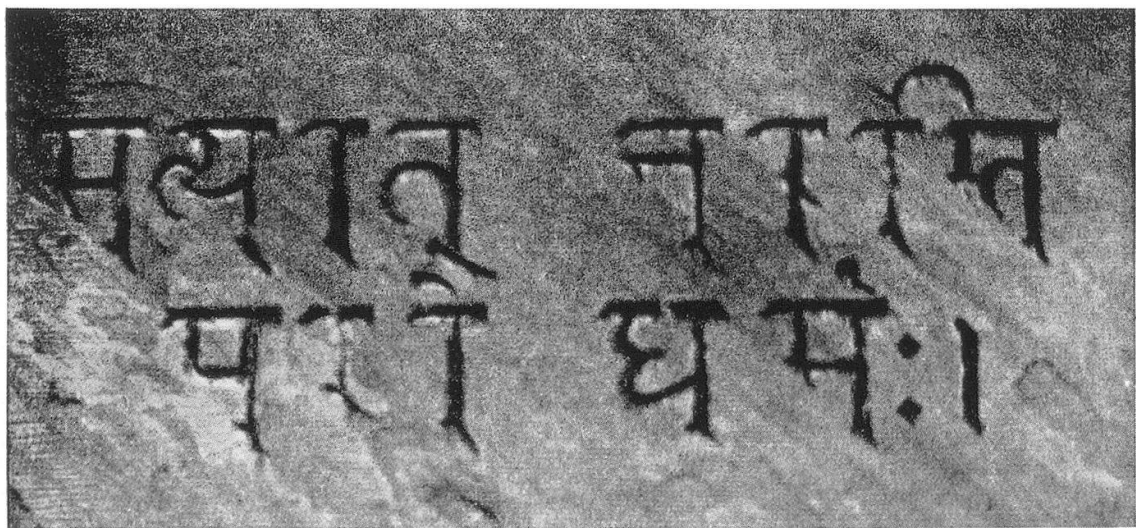 सत्यात् नास्ति
परो धर्मः।